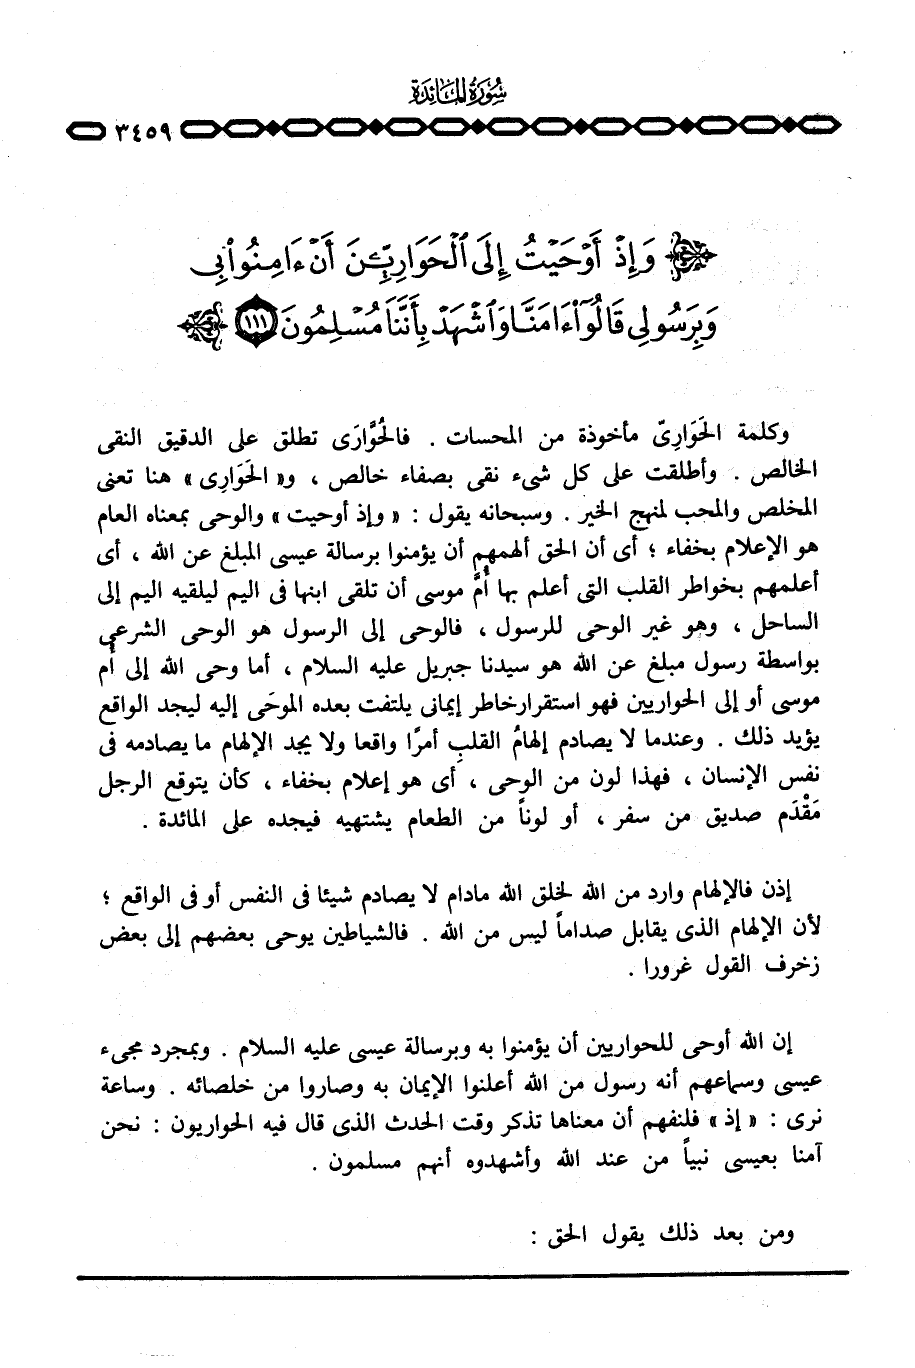 سُورَةُ المَائِدَةِ
٣٤٥٩
وَإِذْ أَوْحَيْتُ إِلَى ٱلْحَوَارِيِّـۧنَ أَنْ ءَامِنُوا۟ بِى
وَبِرَسُولِى قَالُوٓا۟ ءَامَنَّا وَٱشْهَدْ بِأَنَّنَا مُسْلِمُونَ ١١١
وكلمة الحَوَارِىّ مأخوذة من المحسات . فالحُوَّارَى تطلق على الدقيق النقى
الخالص . وأطلقت على كل شىء نقى بصفاء خالص ، و« الحَوَارِى » هنا تعنى
المخلص والمحب لمنهج الخير . وسبحانه يقول : « وإذ أوحيت » والوحى بمعناه العام
هو الإعلام بخفاء ؛ أى أن الحق ألهمهم أن يؤمنوا برسالة عيسى المبلغ عن الله ، أى
أعلمهم بخواطر القلب التى أعلم بها أُمَّ موسى أن تلقى ابنها فى اليم ليلقيه اليم إلى
الساحل ، وهو غير الوحى للرسول ، فالوحى إلى الرسول هو الوحى الشرعى
بواسطة رسول مبلغ عن الله هو سيدنا جبريل عليه السلام ، أما وحى الله إلى أُم
موسى أو إلى الحواريين فهو استقرار خاطر إيمانى يلتفت بعده الموحَى إليه ليجد الواقع
يؤيد ذلك . وعندما لا يصادم إلهامُ القلبِ أمرًا واقعا ولا يجد الإلهام ما يصادمه فى
نفس الإنسان ، فهذا لون من الوحى ، أى هو إعلام بخفاء ، كأن يتوقع الرجل
مَقْدَم صديق من سفر ، أو لوناً من الطعام يشتهيه فيجده على المائدة .
إذن فالإلهام وارد من الله لخلق الله مادام لا يصادم شيئا فى النفس أو فى الواقع ؛
لأن الإلهام الذى يقابل صداماً ليس من الله . فالشياطين يوحى بعضهم إلى بعض
زخرف القول غرورا .
إن الله أوحى للحواريين أن يؤمنوا به وبرسالة عيسى عليه السلام . وبمجرد مجىء
عيسى وسماعهم أنه رسول من الله أعلنوا الإيمان به وصاروا من خلصائه . وساعة
نرى : « إذ » فلنفهم أن معناها تذكر وقت الحدث الذى قال فيه الحواريون : نحن
آمنا بعيسى نبياً من عند الله وأشهدوه أنهم مسلمون .
ومن بعد ذلك يقول الحق :